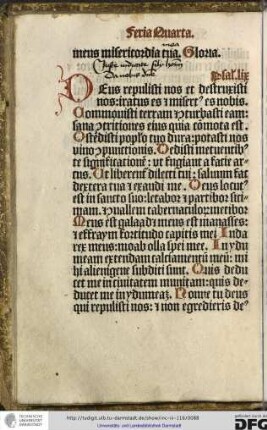 Feria Quarta.
meus misericordia tua. Gloria.
mea
Psal. lix
DEus repulisti nos et destruxisti
nos: iratus es ⁊ misertꝰ es nobis.
Commouisti terram ⁊ cturbasti eam:
sana ↄtritiones eius quia cōmota est.
Ostēdisti populo tuo dura: potasti nos
vino ↄpunctionis. Dedisti metuentibꝰ
te significationē: vt fugiant a facie ar⸗
cus. Ut liberent̄ dilecti tui: saluum fac
dextera tua ⁊ exaudi me. Deus locutꝰ
est in sancto suo: letabor ⁊ partibor sici⸗
mam. ⁊ ↄuallem tabernaculoꝝ: metibor
Meus est galaad ⁊ meus est manasses:
⁊ effraym fortitudo capitis mei Juda
rex meus: moab olla spei mee. In ydu
meam extendam calciamentū meū: mi
hi alienigene subditi sunt. Quis dedu
cet me in ciuitatem munitam: quis de⸗
ducet me in ydumeaꝫ. Nonne tu deus
qui repulisti nos: ⁊ non egredieris de⸗
TECHNISCHE
UNIVERSITÄT
DARMSTADT
http://tudigit.ulb.tu-darmstadt.de/show/inc-iv-118/0088
Universitäts- und Landesbibliothek Darmstadt
DFG